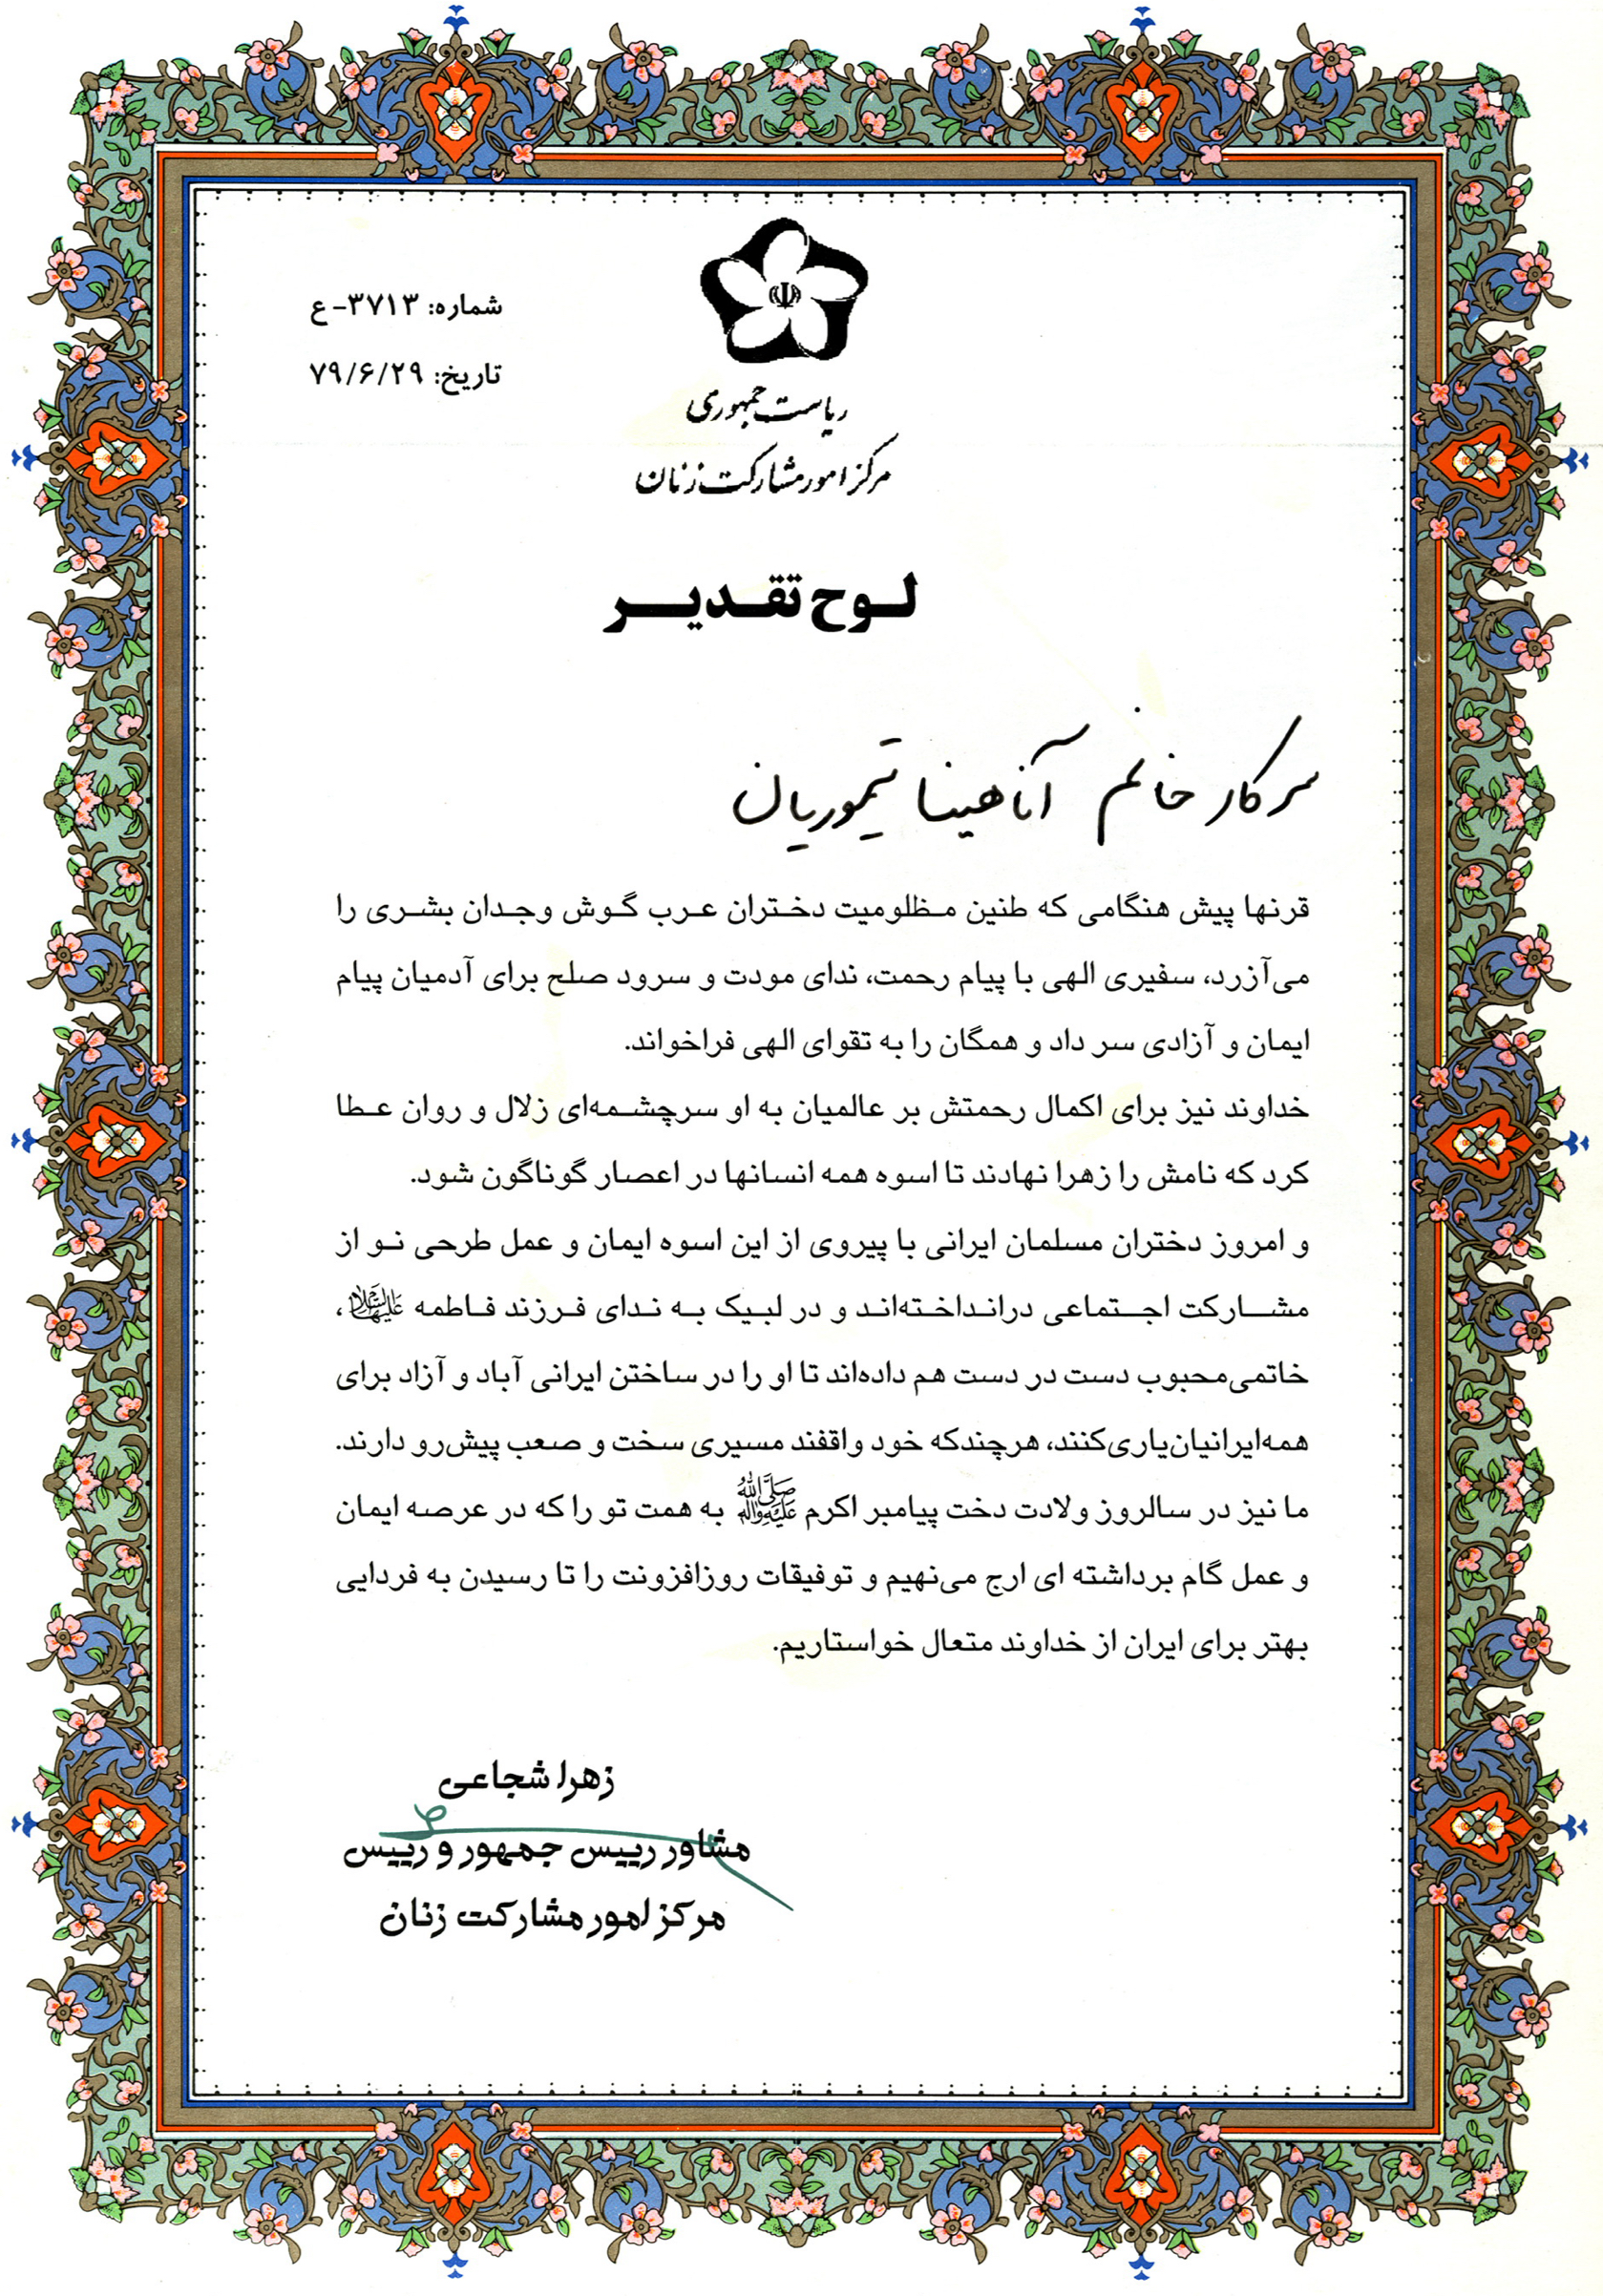 شماره: ۳۷۱۳-ع
تاریخ: ۷۹/۶/۲۹
ریاست جمهوری
مرکز امور مشارکت زنان
لوح تقدیر
سرکار خانم آناهیتا تیموریان
قرنها پیش هنگامی که طنین مظلومیت دختران عرب گوش وجدان بشری را
می‌آزرد، سفیری الهی با پیام رحمت، ندای مودت و سرود صلح برای آدمیان پیام
ایمان و آزادی سر داد و همگان را به تقوای الهی فراخواند.
خداوند نیز برای اکمال رحمتش بر عالمیان به او سرچشمه‌ای زلال و روان عطا
کرد که نامش را زهرا نهادند تا اسوه همه انسانها در اعصار گوناگون شود.
و امروز دختران مسلمان ایرانی با پیروی از این اسوه ایمان و عمل طرحی نو از
مشارکت اجتماعی درانداخته‌اند و در لبیک به ندای فرزند فاطمه علیهاالسلام،
خاتمی‌محبوب دست در دست هم داده‌اند تا او را در ساختن ایرانی آباد و آزاد برای
همه‌ایرانیان‌یاری‌کنند، هرچندکه خود واقفند مسیری سخت و صعب پیش‌رو دارند.
ما نیز در سالروز ولادت دخت پیامبر اکرم صلی الله علیه وآله به همت تو را که در عرصه ایمان
و عمل گام برداشته ای ارج می‌نهیم و توفیقات روزافزونت را تا رسیدن به فردایی
بهتر برای ایران از خداوند متعال خواستاریم.
زهرا شجاعی
مشاور رییس جمهور و رییس
مرکز امور مشارکت زنان